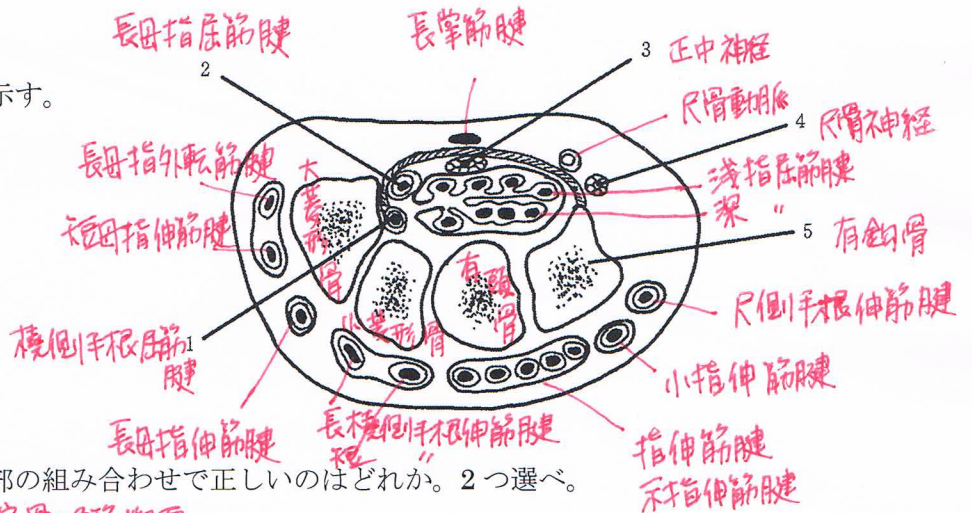 長母指屈筋腱
長掌筋腱
3 正中神経
2
示す。
尺骨動脈
4 尺骨神経
長母指外転筋腱
大菱形骨
浅指屈筋腱
深 〃
短母指伸筋腱
5 有鈎骨
有頭骨
小菱形骨
尺側手根伸筋腱
橈側手根屈筋腱
1
小指伸筋腱
長母指伸筋腱
長橈側手根伸筋腱
短 〃
指伸筋腱
示指伸筋腱
部の組み合わせで正しいのはどれか。2つ選べ。